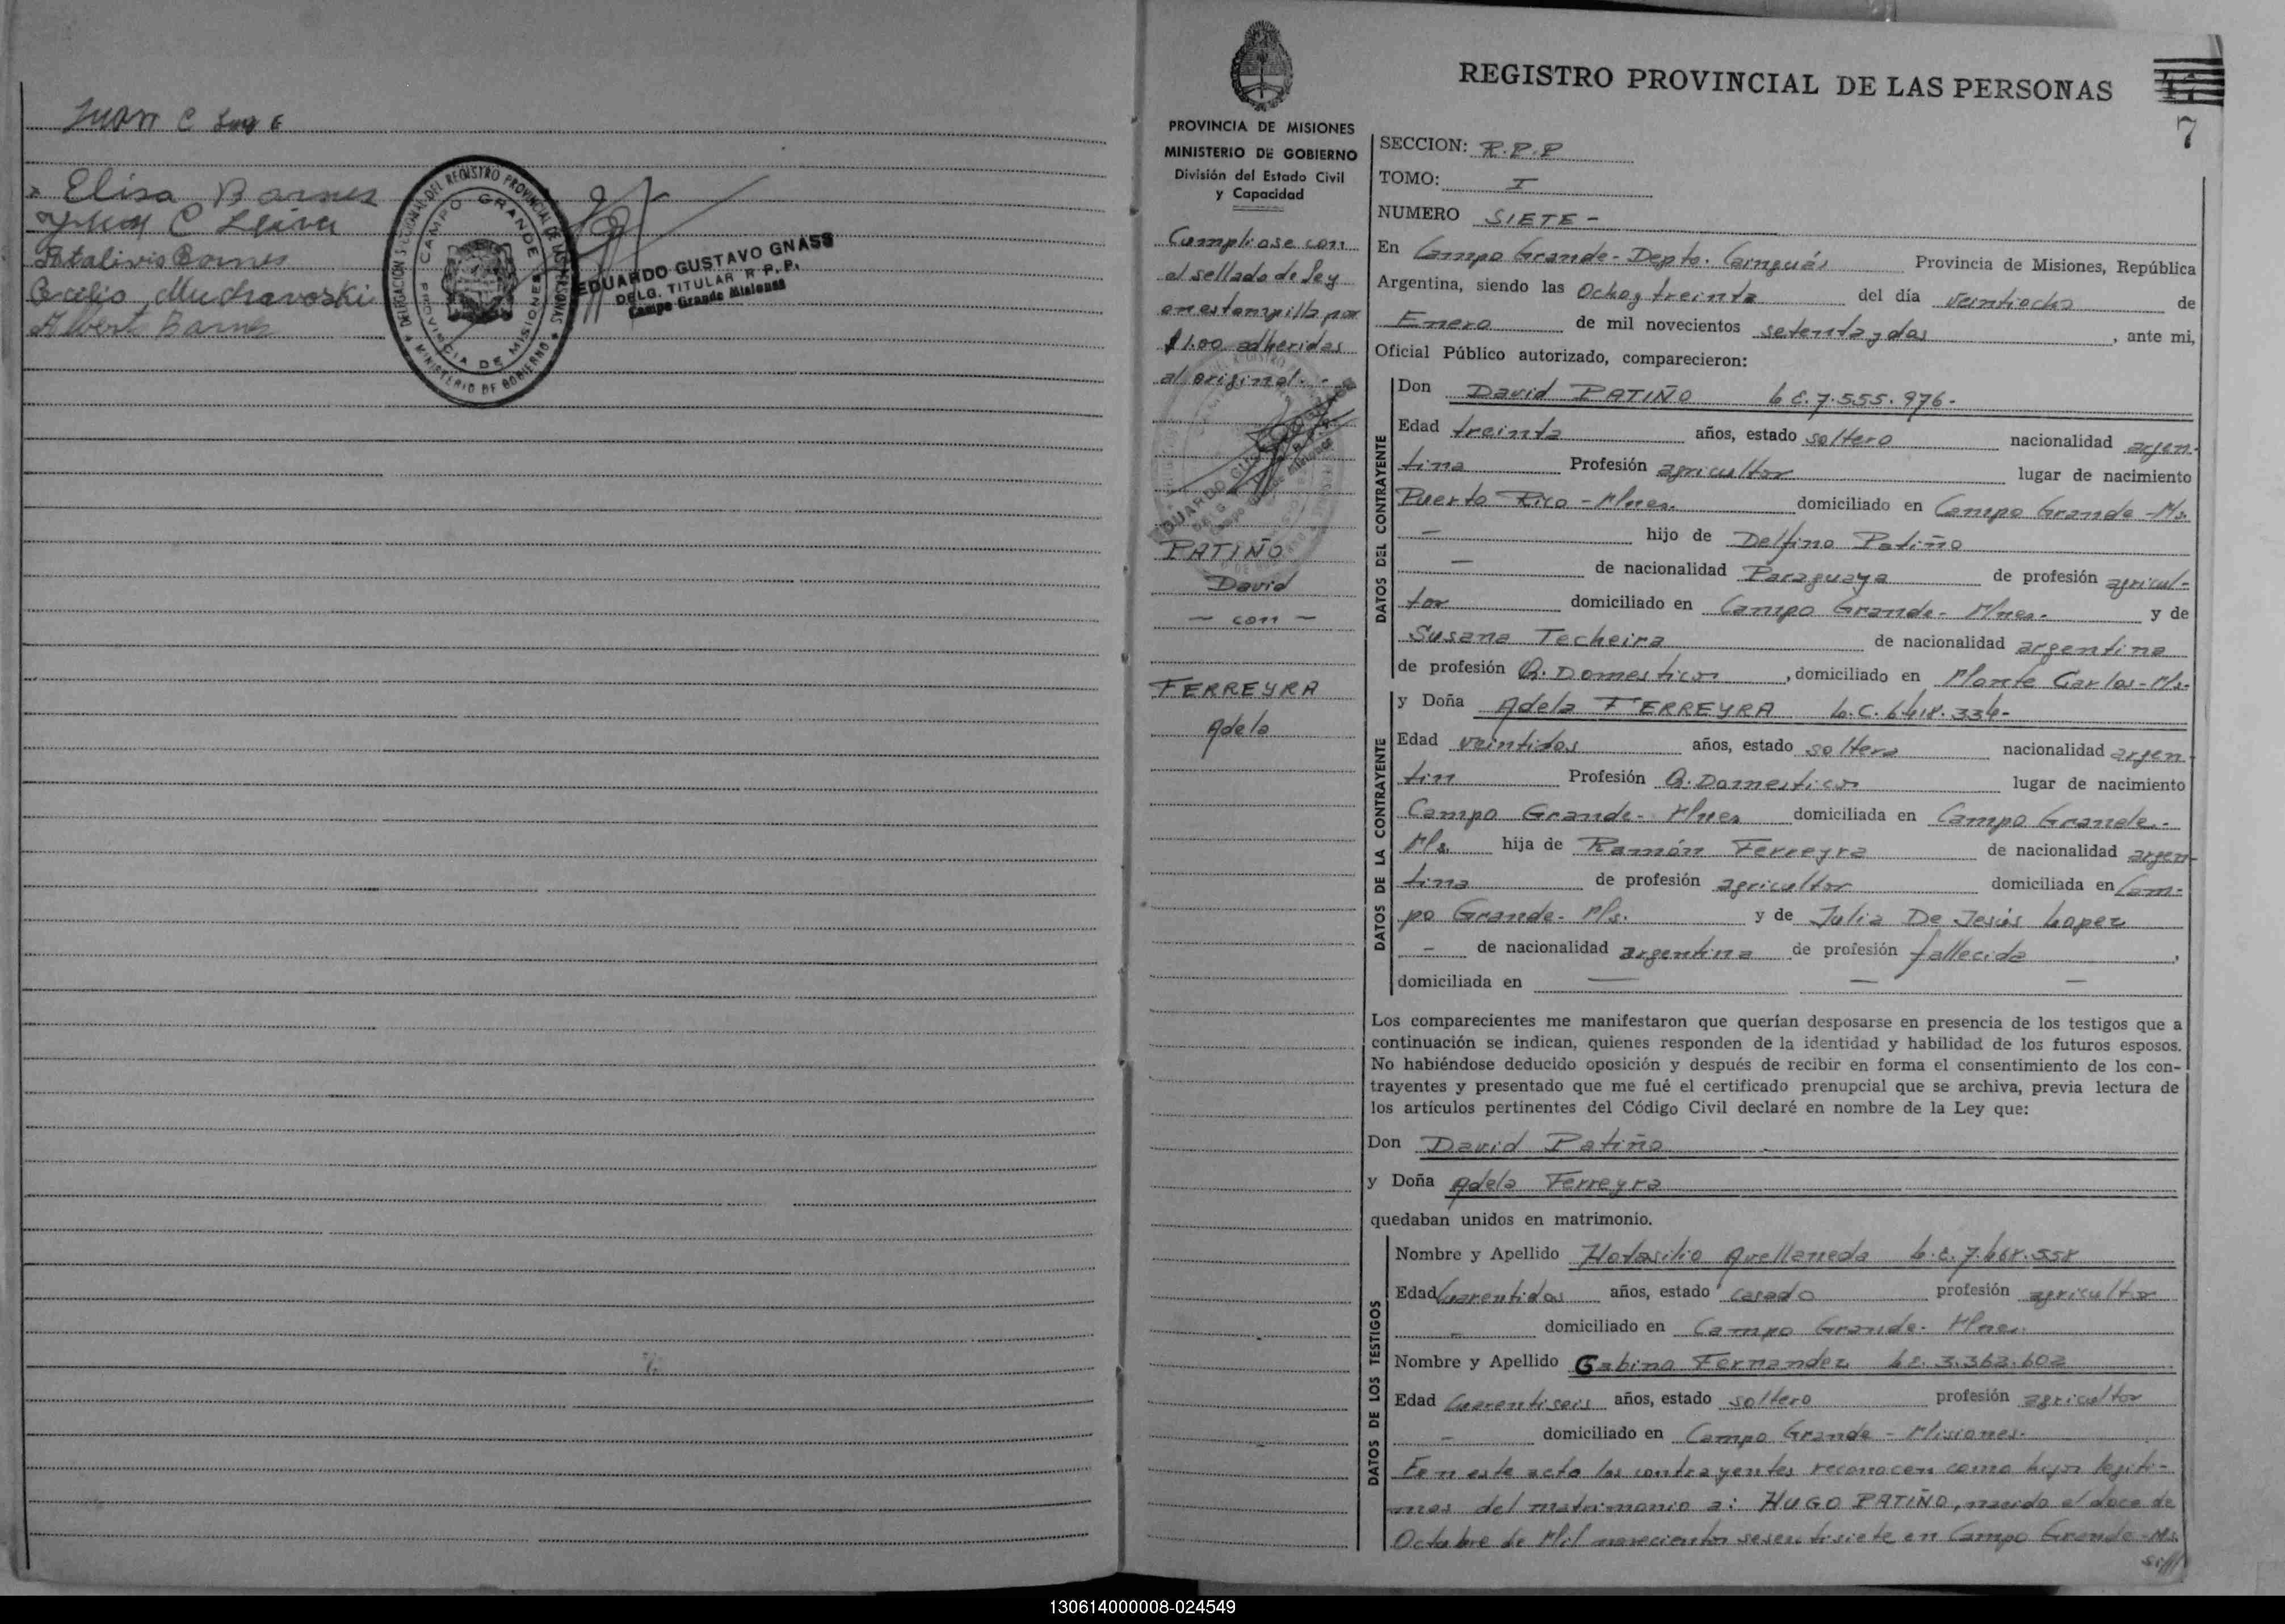 Juan C
Elisa Barnes
Juan C Leiva
Natalivio Barnes
Cecilio Muchavoski
Albert Barnes
DELEGACION SECCIONAL DEL REGISTRO PROVINCIAL DE LAS PERSONAS
MINISTERIO DE GOBIERNO
CAMPO GRANDE
PROVINCIA DE MISIONES
EDUARDO GUSTAVO GNASS
DELG. TITULAR R.P.P.
Campo Grande Misiones
REGISTRO PROVINCIAL DE LAS PERSONAS
7
PROVINCIA DE MISIONES
MINISTERIO DE GOBIERNO
División del Estado Civil
y Capacidad
Cumpliose con
el sellado de ley
en estampilla por
$1.00 adheridas
al original.-
PATIÑO
David
- con -
FERREYRA
Adela
SECCION: R.P.P
TOMO: I
NUMERO SIETE -
En Campo Grande - Depto. Cainguás Provincia de Misiones, República
Argentina, siendo las Ocho y treinta del día veintiocho de
Enero de mil novecientos setenta y dos, ante mi,
Oficial Público autorizado, comparecieron:
DATOS DEL CONTRAYENTE
Don David PATIÑO L.E. 7.555.976.
Edad treinta años, estado soltero nacionalidad argen-
tina Profesión agricultor lugar de nacimiento
Puerto Rico - Mnes. domiciliado en Campo Grande - Ms.
- hijo de Delfino Patiño
- de nacionalidad Paraguaya de profesión agricul-
tor domiciliado en Campo Grande - Mnes. y de
Susana Techeira de nacionalidad argentina
de profesión Q. Domesticos, domiciliado en Monte Carlos - Ms.
DATOS DE LA CONTRAYENTE
y Doña Adela FERREYRA L.C. 6.418.334-
Edad veintidos años, estado soltera nacionalidad argen
tin Profesión Q. Domesticos lugar de nacimiento
Campo Grande - Mnes domiciliada en Campo Grande -
Ms. hija de Ramón Ferreyra de nacionalidad argen-
tina de profesión agricultor domiciliada en Cam-
po Grande - Ms. y de Julia De Jesús Lopez
- de nacionalidad argentina de profesión fallecida,
domiciliada en - - -
Los comparecientes me manifestaron que querían desposarse en presencia de los testigos que a
continuación se indican, quienes responden de la identidad y habilidad de los futuros esposos.
No habiéndose deducido oposición y después de recibir en forma el consentimiento de los con-
trayentes y presentado que me fué el certificado prenupcial que se archiva, previa lectura de
los artículos pertinentes del Código Civil declaré en nombre de la Ley que:
Don David Patiño
y Doña Adela Ferreyra
quedaban unidos en matrimonio.
DATOS DE LOS TESTIGOS
Nombre y Apellido Avellaneda L.E. 7.468.558
Edad Cuarentidos años, estado casado profesión agricultor
- domiciliado en Campo Grande - Mnes.
Nombre y Apellido Gabino Fernandez L.E. 3.362.602
Edad Cuarentiseis años, estado soltero profesión agricultor
- domiciliado en Campo Grande - Misiones.
En este acto los contrayentes reconocen como hijos legiti-
mos del matrimonio a: HUGO PATIÑO, nacido el doce de
Octubre de Mil novecientos sesentisiete en Campo Grande - Ms.
130614000008-024549